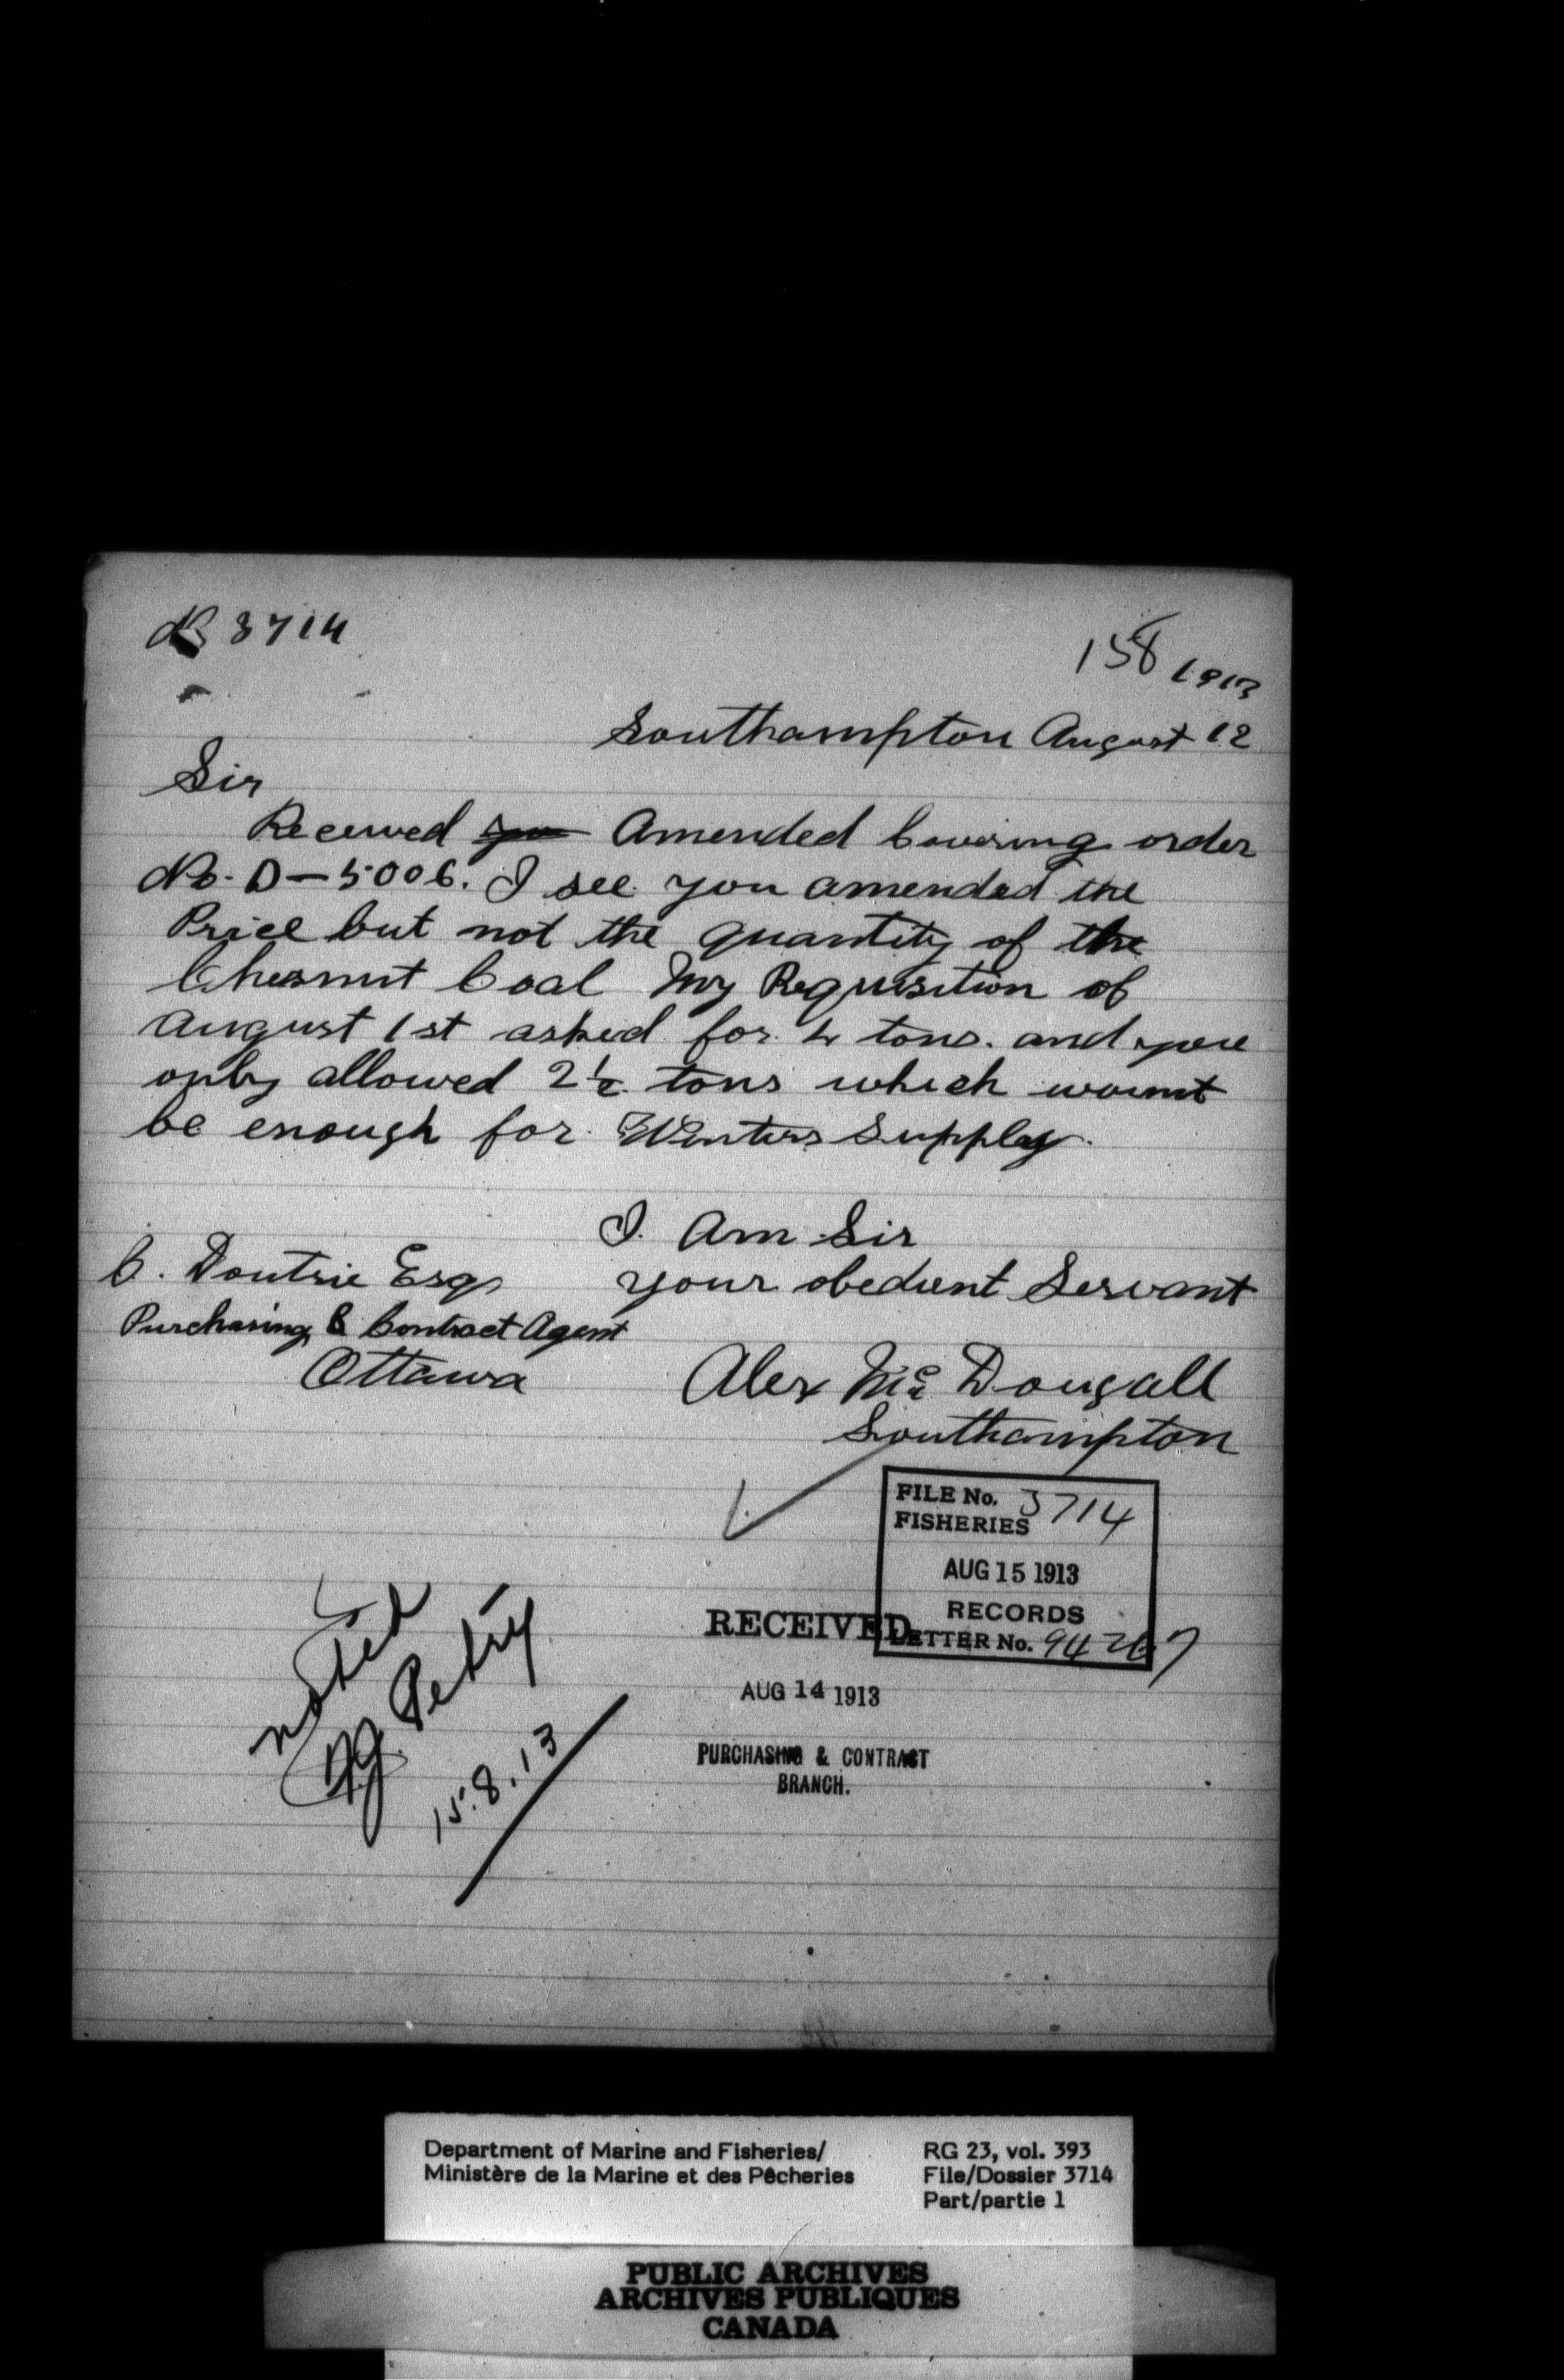 No 3714
158
1913
Southampton August 12
Sir
Received you Amended Covering order
No. D-5006. I see you amended the
Price but not the quantity of the
Chesnut Coal My Requisition of
August 1st asked for 4 tons. and you
only allowed 2½ tons which wount
be enough for Winters Supply.
I. Am Sir
your obedient Servant
C. Doutrie Esq
Purchasing & Contract Agent
Ottawa
Alex Mc Dougall
Southampton
FILE No. 3714
FISHERIES
AUG 15 1913
RECORDS
LETTER No. 94267
RECEIVED
AUG 14 1913
PURCHASING & CONTRACT
BRANCH.
noted
Petry
15.8.13
Department of Marine and Fisheries/
Ministère de la Marine et des Pêcheries
RG 23, vol. 393
File/Dossier 3714
Part/partie 1
PUBLIC ARCHIVES
ARCHIVES PUBLIQUES
CANADA